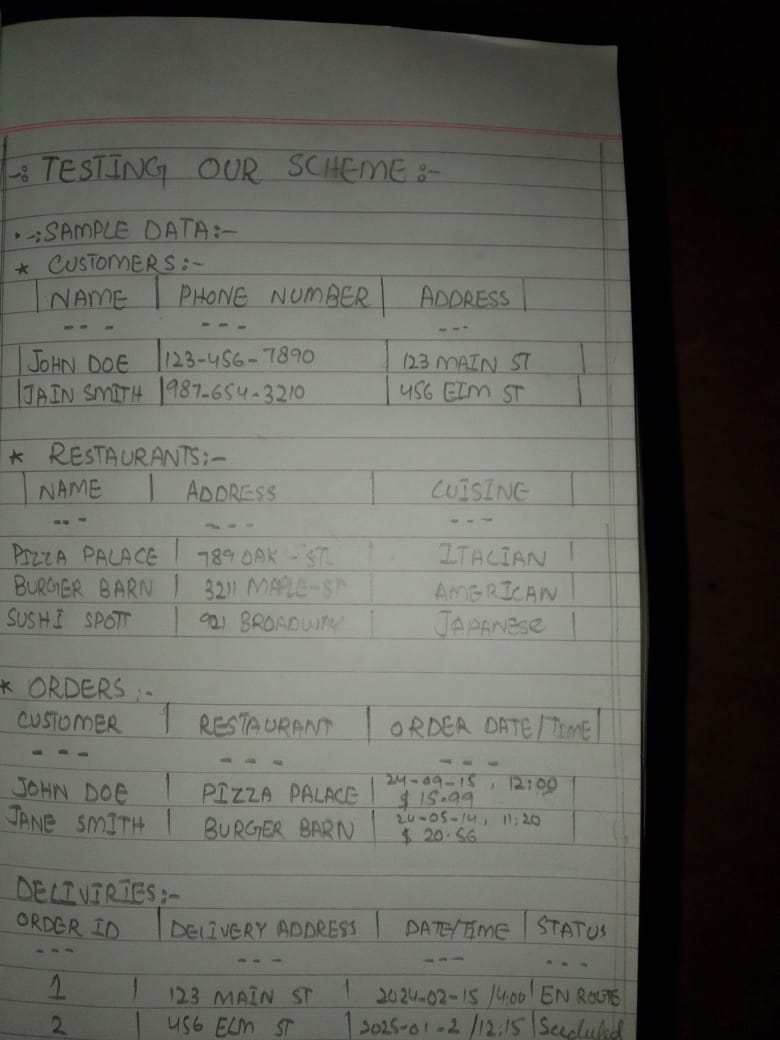 -: TESTING OUR SCHEME :-
• -: SAMPLE DATA :-
* CUSTOMERS :-
| NAME | PHONE NUMBER | ADDRESS |
--- --- ---
| JOHN DOE | 123-456-7890 | 123 MAIN ST |
| JAIN SMITH | 987-654-3210 | 456 ElM ST |
* RESTAURANTS :-
| NAME | ADDRESS | CUISING |
--- --- ---
PIZZA PALACE | 789 OAK - ST | ITALIAN |
BURGER BARN | 3211 MAPLE-ST | AMERICAN |
SUSHI SPOT | 921 BROADWAY | JAPANESE |
* ORDERS :-
CUSTOMER | RESTAURANT | ORDER DATE/TIME |
--- --- ---
JOHN DOE | PIZZA PALACE | 24-09-15, 12:00 |
$ 15.99
JANE SMITH | BURGER BARN | 24-05-14, 11:20 |
$ 20.56
DELIVIRIES :-
ORDER ID | DELIVERY ADDRESS | DATE/TIME | STATUS
--- --- --- ---
1 | 123 MAIN ST | 2024-02-15 /4:00 | EN ROUTE
2 | 456 ELM ST | 2025-01-2 /12:15 |